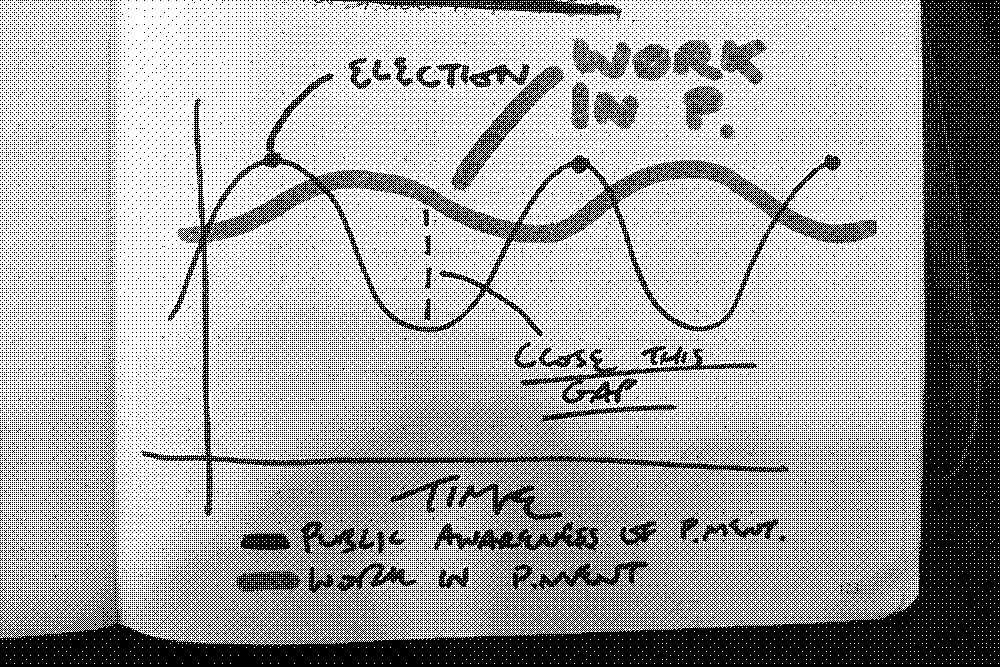 ELECTION
WORK
IN P.
CLOSE THIS
GAP
TIME
PUBLIC AWARENESS OF P.MENT.
WORK IN P.MENT